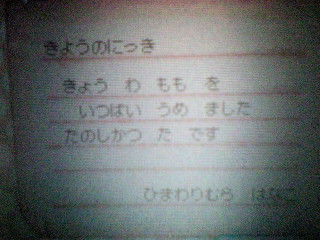 きょうのにっき
きょう わ もも を
いつぱい うめ ました
たのしかつ た です
ひまわりむら はなこ